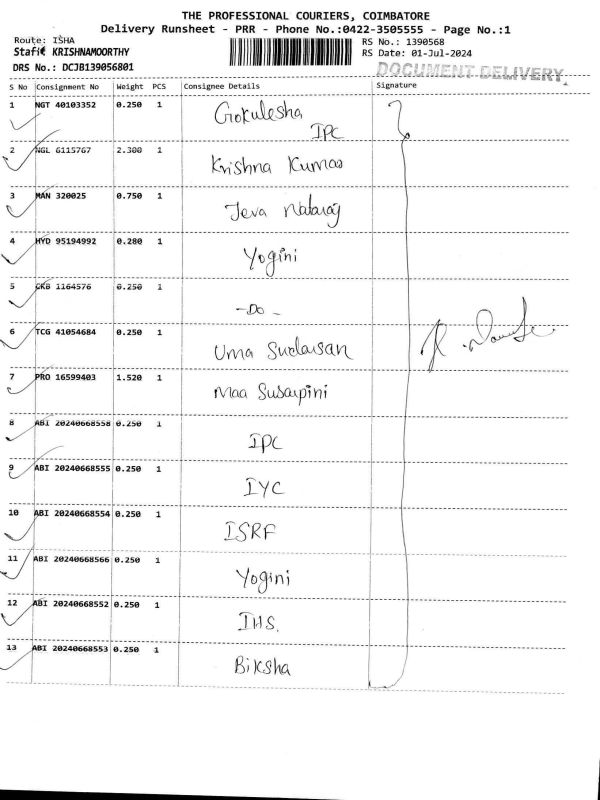 THE PROFESSIONAL COURIERS, COIMBATORE
Delivery Runsheet - PRR - Phone No.:0422-3505555 - Page No.:1
Route: ISHA RS No.: 1390568
Staff: KRISHNAMOORTHY RS Date: 01-Jul-2024
DRS No.: DCJB139056801 DOCUMENT DELIVERY
S No Consignment No Weight PCS Consignee Details Signature
1 NGT 40103352 0.250 1 Gokulesha
IPC
2 NGL 6115767 2.300 1 Krishna Kumar
3 MAN 320025 0.750 1 Jeva Nataraj
4 HYD 95194992 0.280 1 Yogini
5 CKB 1164576 0.250 1 -Do-
6 TCG 41054684 0.250 1 Uma Sudarsan
7 PRO 16599403 1.520 1 Maa Susarpini
8 ABI 20240668558 0.250 1 IPC
9 ABI 20240668555 0.250 1 IYC
10 ABI 20240668554 0.250 1 ISRF
11 ABI 20240668566 0.250 1 Yogini
12 ABI 20240668552 0.250 1 IHS.
13 ABI 20240668553 0.250 1 Biksha